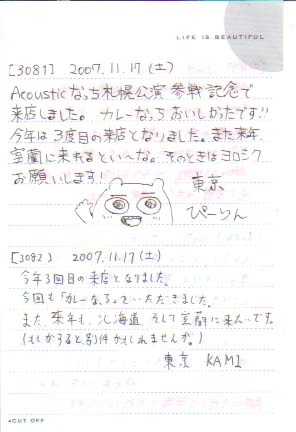 LIFE IS BEAUTIFUL
[3081] 2007.11.17(土)
Acoustic なっち札幌公演 参戦記念で
来店しました。カレーなっち おいしかったです!!
今年は3度目の来店となりました。また来年、
室蘭に来れるといーな。そのときはヨロシク
お願いします!
東京
ぴーりん
[3082] 2007.11.17(土)
今年3回目の来店となりました。
今回も「カレーなっち」
いただきました。
また、来年も、北海道、そして室蘭に来たいです。
(もしかすると、別件かもしれませんが。)
東京 KAMI
CUT OFF